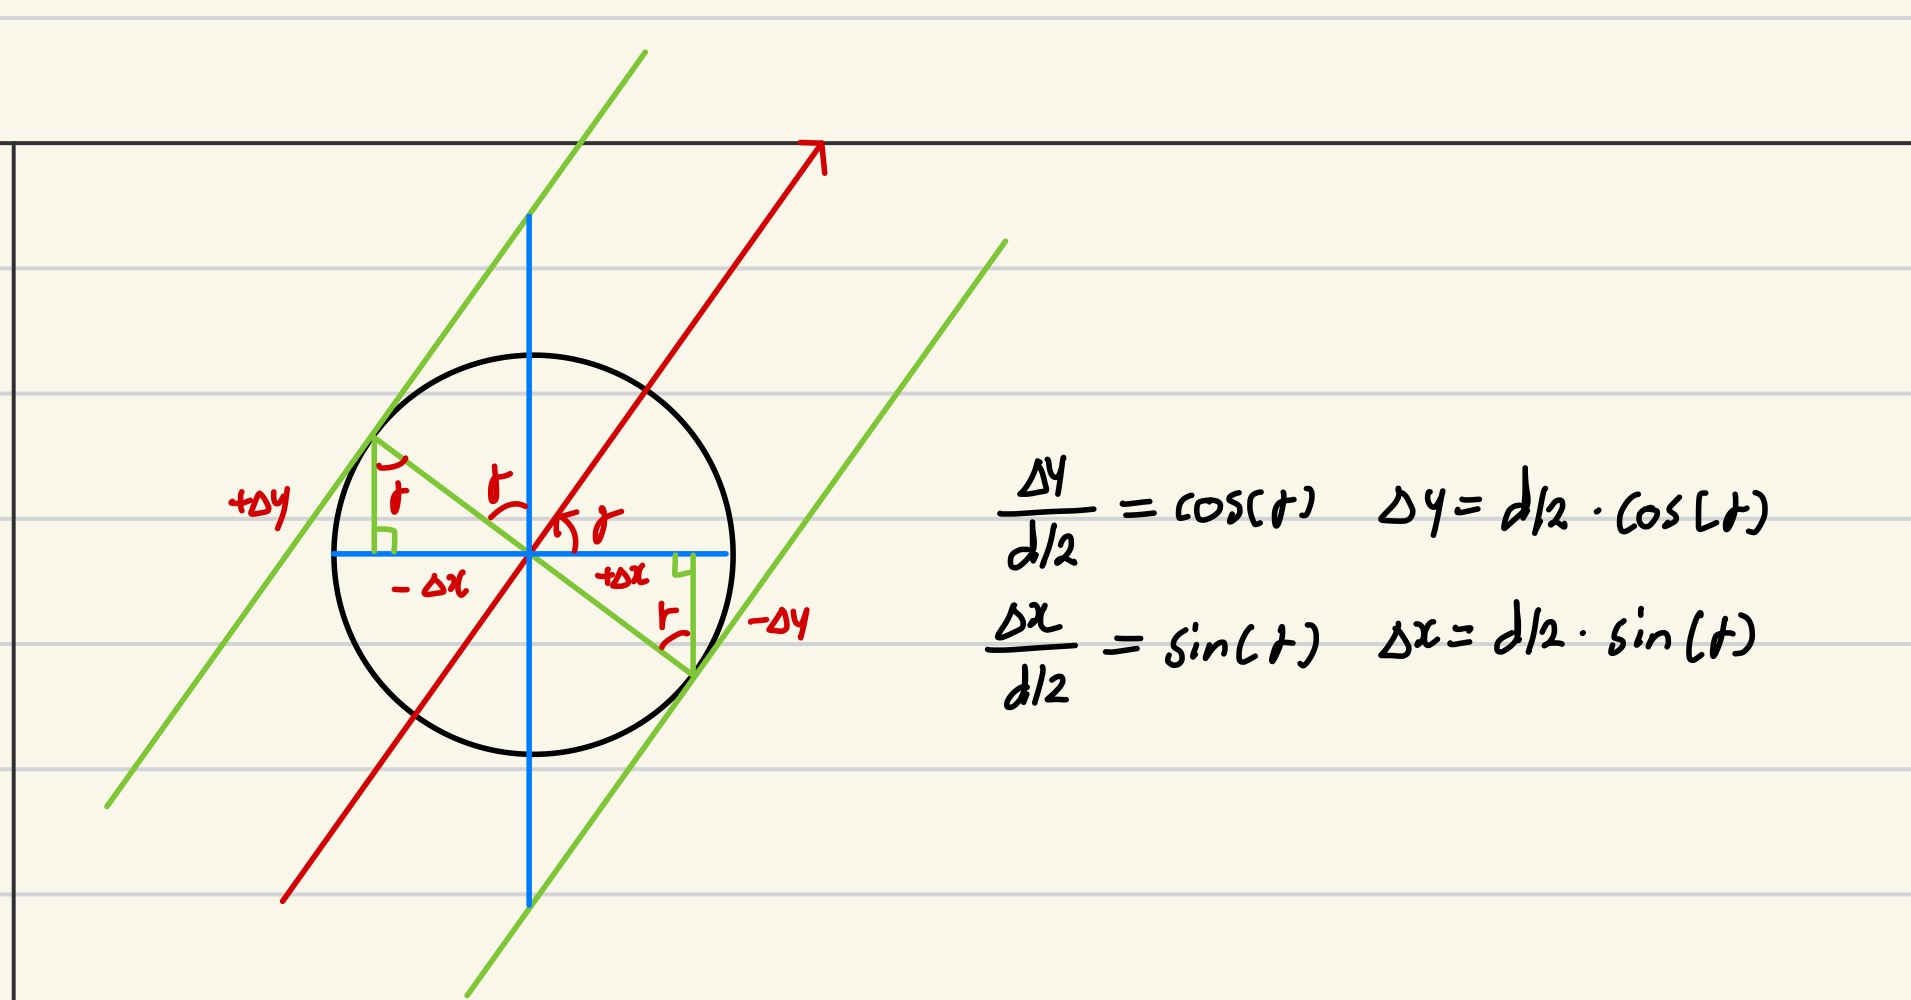 +Δy
γ
γ
γ
-Δx
+Δx
r
-Δy
Δy/d/2 = cos(γ) Δy = d/2 · cos(γ)
Δx/d/2 = sin(γ) Δx = d/2 · sin(γ)